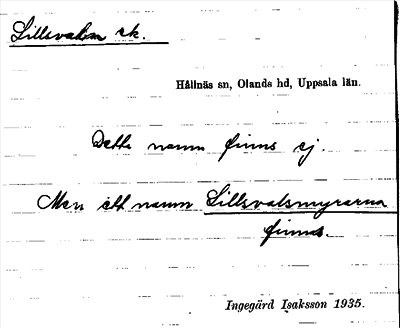 Lillsvalm sk.
Hållnäs sn, Olands hd, Uppsala län.
Detta namn finns ej.
Men ett namn Lillsvalsmyrarna
finnes.
Ingegärd Isaksson 1935.